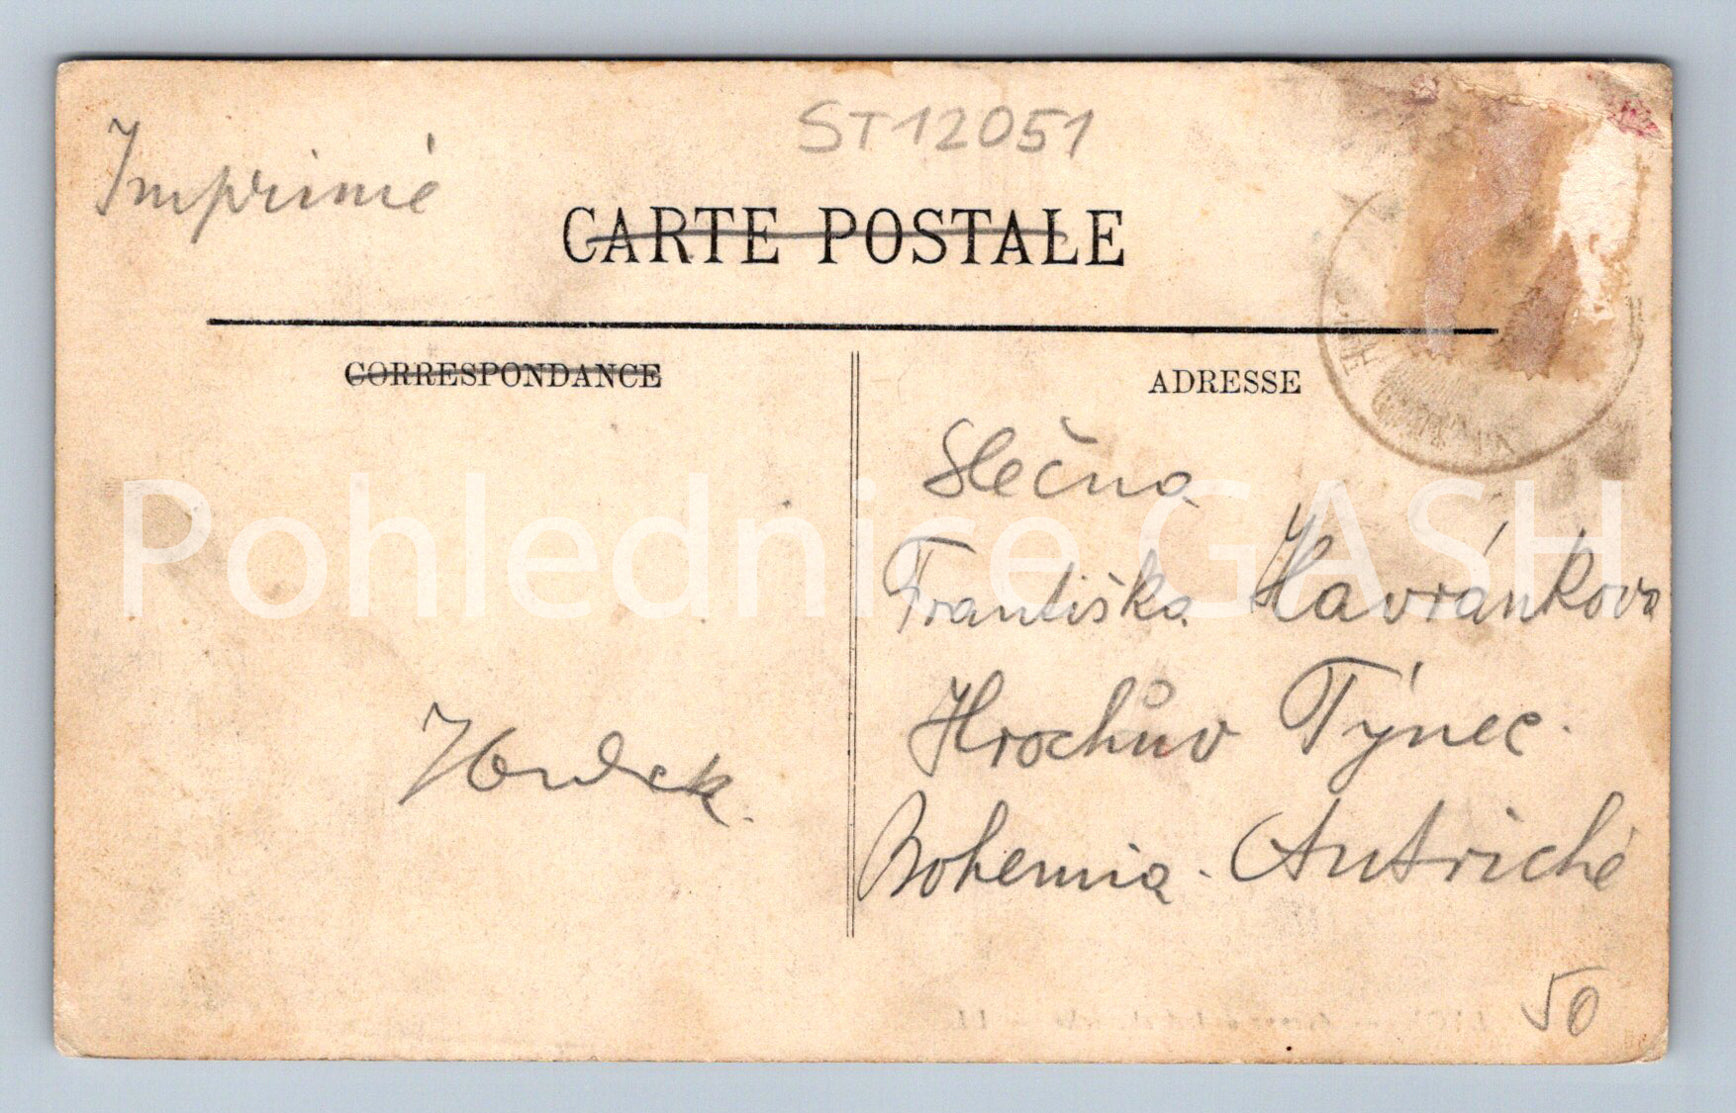 ST12051
Imprimé
CARTE POSTALE
CORRESPONDANCE
ADRESSE
Slečna
Pohlednice GASH
Františka Havránkova
Hrochův Týnec.
Bohemia. Autriché
50